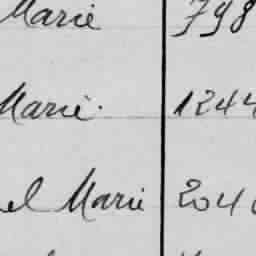 Marie 798
Marie. 1244
el Marie 204